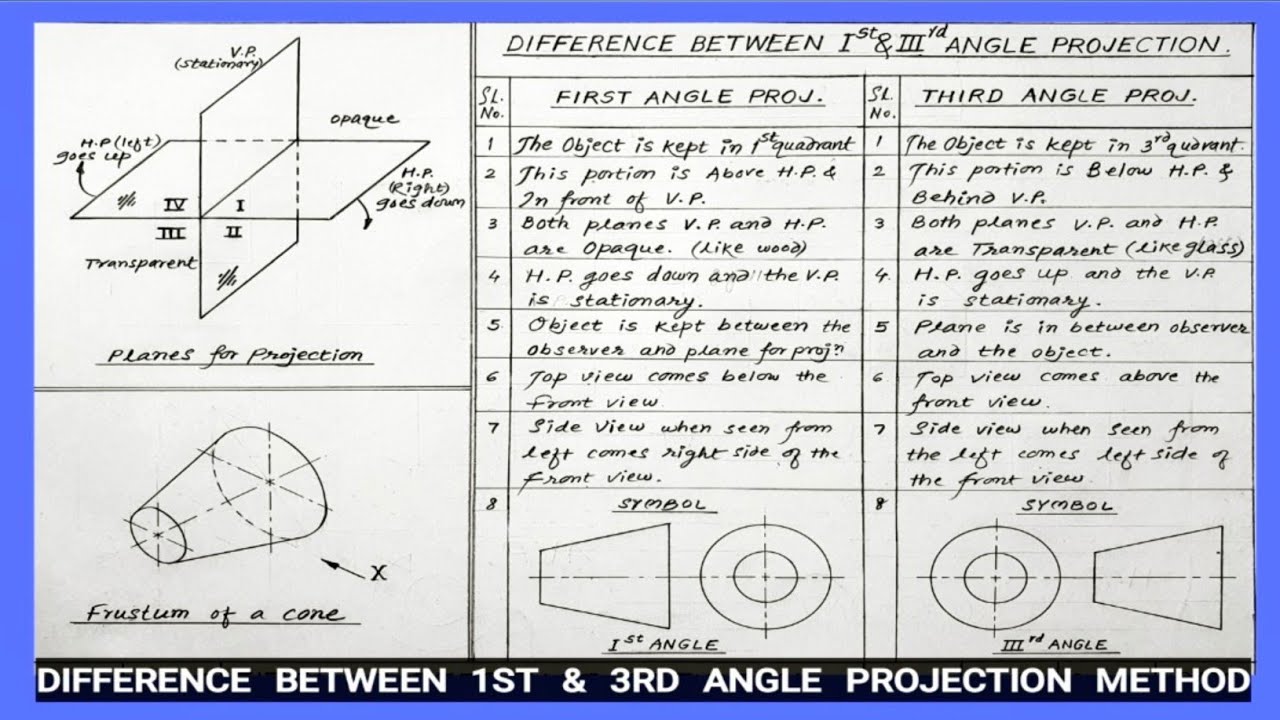 V.P.
(stationary)
opaque
H.P (left)
goes up
H.P.
(Right)
goes down
IV I
III II
Transparent
Planes for Projection
X
Frustum of a cone
DIFFERENCE BETWEEN Ist & IIIrd ANGLE PROJECTION.
SL. No. FIRST ANGLE PROJ.
1 The Object is kept in 1st quadrant
2 This portion is Above H.P. &
In front of V.P.
3 Both planes V.P. and H.P.
are Opaque. (like wood)
4 H.P. goes down and the V.P.
is stationary.
5 Object is kept between the
observer and plane for projn
6 Top view comes below the
front view
7 Side View when seen from
left comes right side of the
Front view.
8 SYMBOL
Ist ANGLE
SL. No. THIRD ANGLE PROJ.
1 The Object is kept in 3rd qudrant.
2 This portion is Below H.P. &
Behind V.P.
3 Both planes V.P. and H.P.
are Transparent (like glass)
4. H.P. goes up and the V.P.
is stationary.
5 Plane is in between observer
and the object.
6 Top view comes above the
front view.
7 Side view when seen from
the left comes left side of
the front view.
8 SYMBOL
IIIrd ANGLE
DIFFERENCE BETWEEN 1ST & 3RD ANGLE PROJECTION METHOD